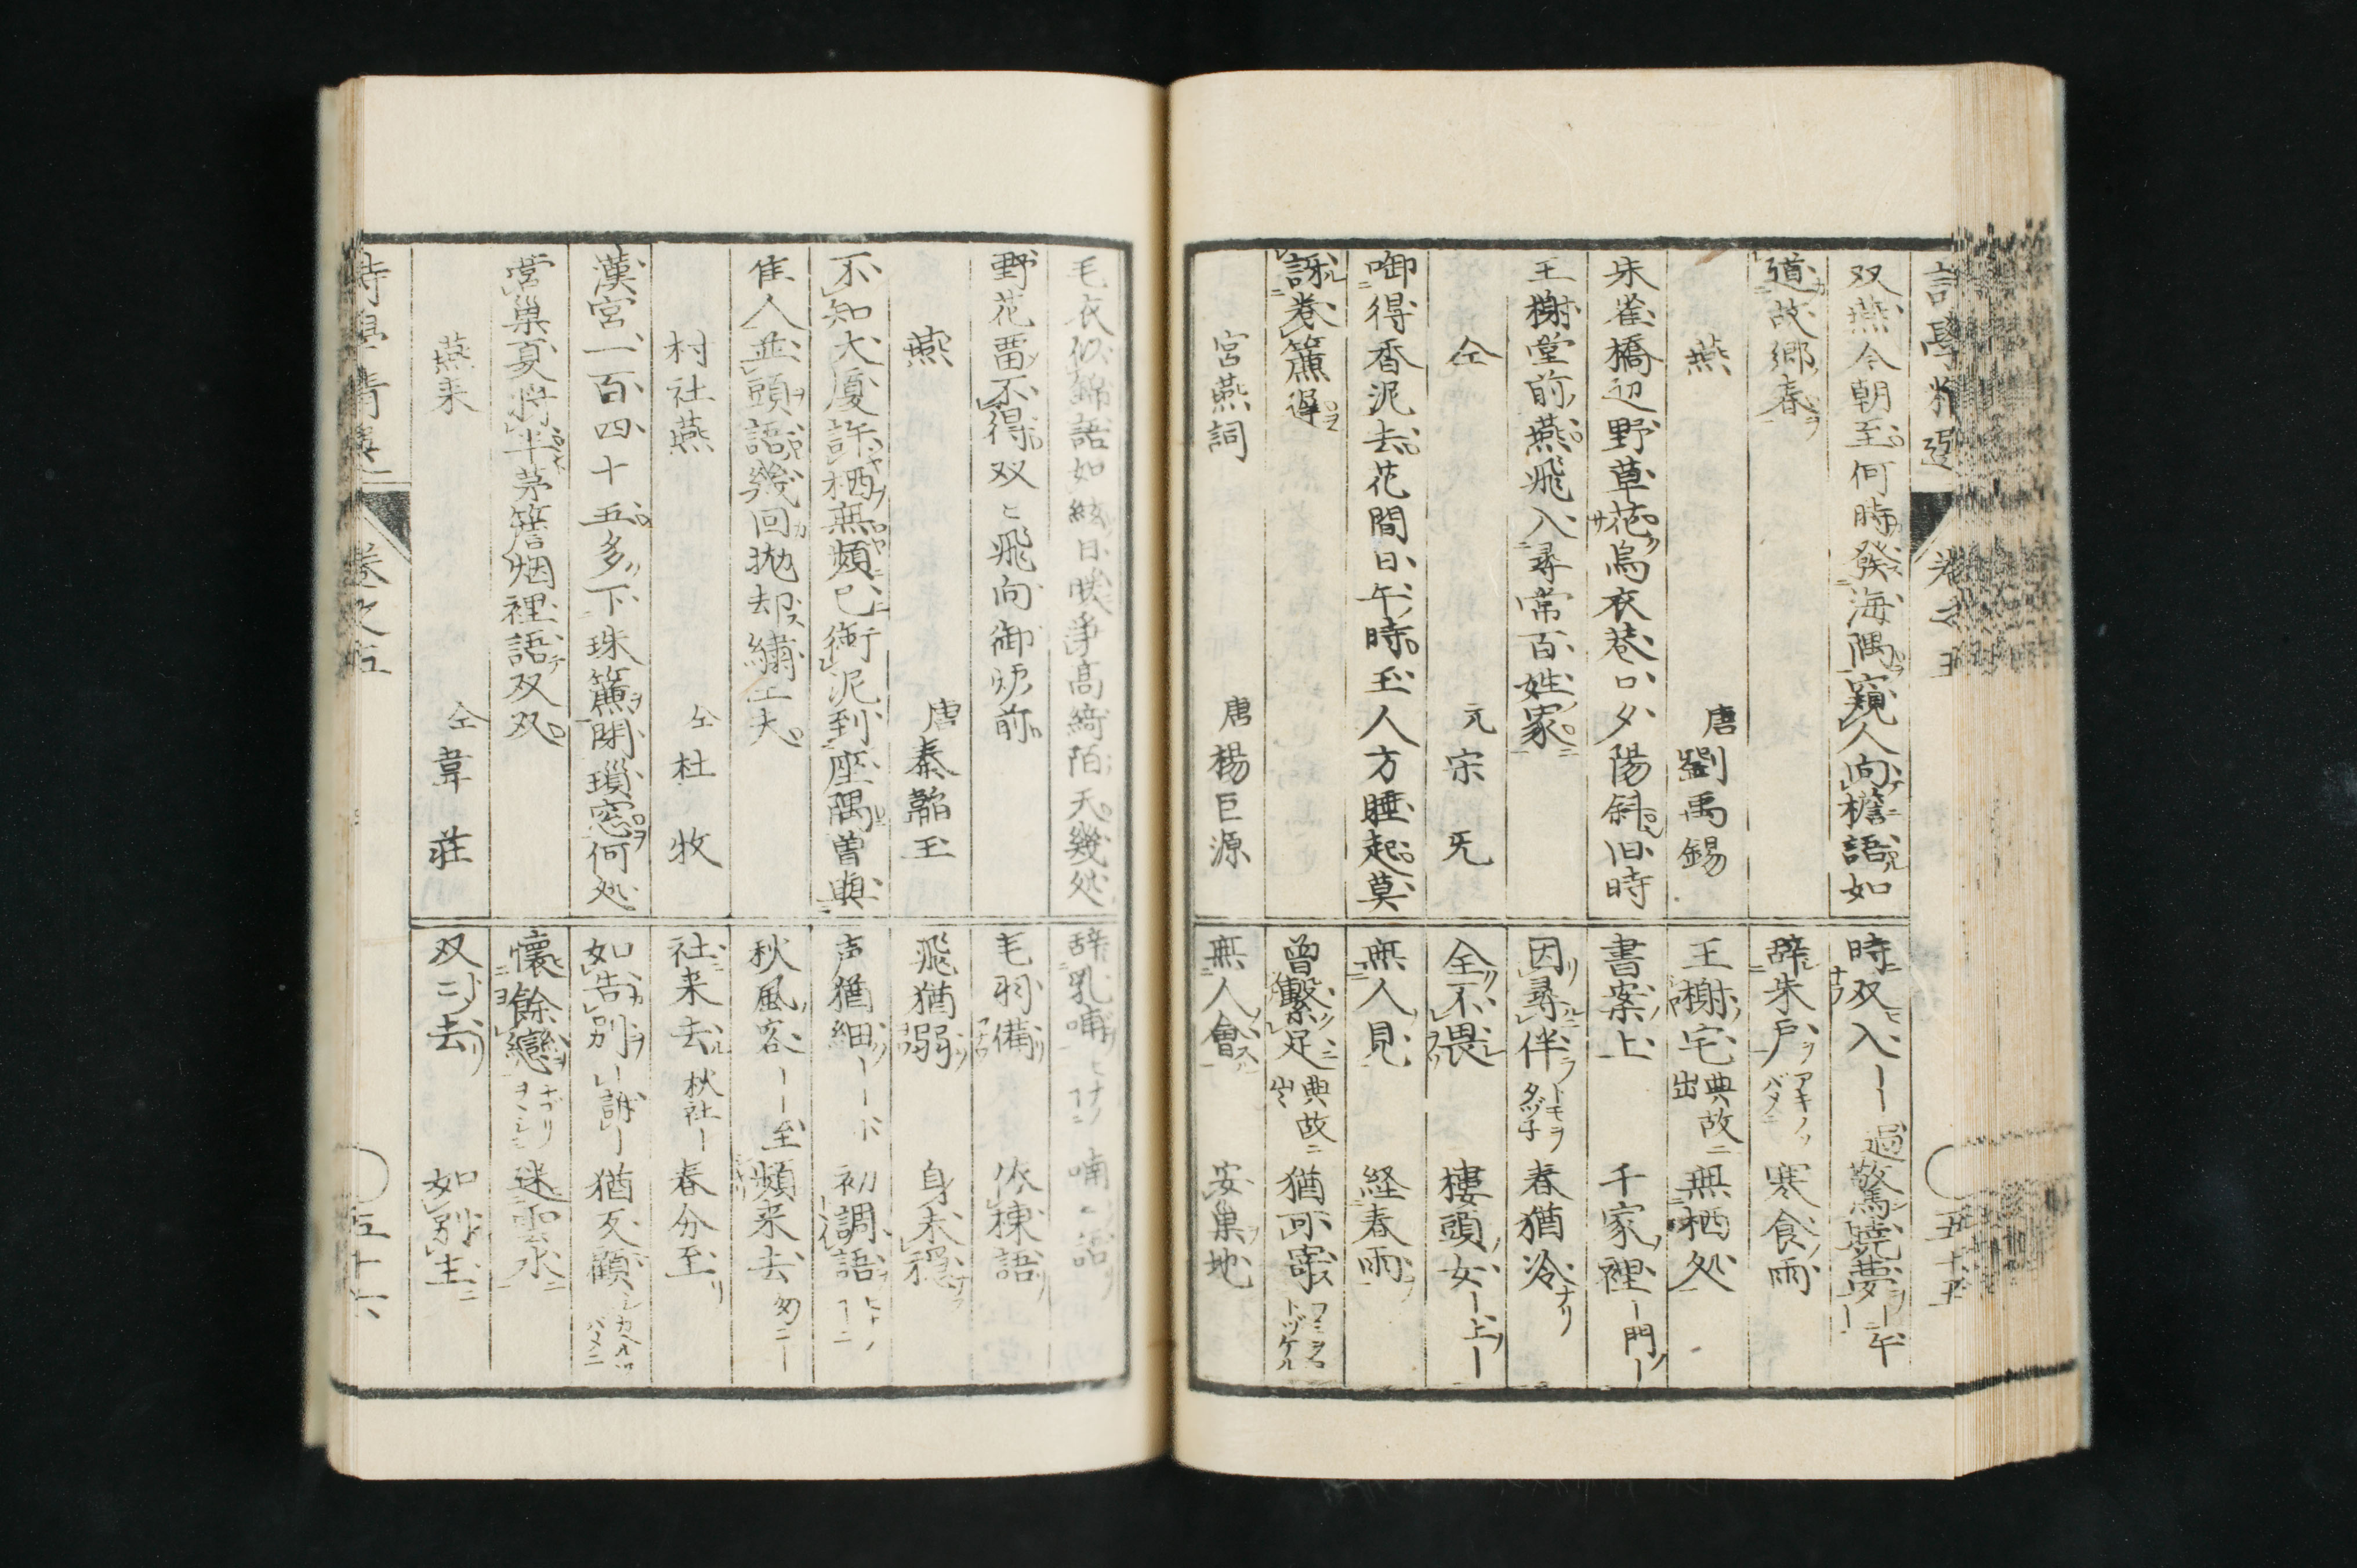 双燕今朝至何時發海隅窺人向檐語如
道故郷春
燕 唐 劉禹錫
朱雀橋辺野草花烏衣巷口夕陽斜旧時
王榭堂前燕飛入尋常百姓家
仝 元 宋无
啣得香泥去花間日午時玉人方睡起莫
訝巻簾遅
宮燕詞 唐 楊巨源
時双入 過 驚暁夢 午
辞朱戸 寒食雨
王榭宅 典故ニ出 無栖処
書案上 千家裡 門
因尋伴 トモヲタヅ子 春猶冷
全不畏 楼頭女 上
無人見 経春雨
曽繋足 典故ニ出 猶可寄
無人會 安巣地
五十五
毛衣似錦語如絃日映争高綺陌天幾処
野花畱不得双〻飛向御炉前
燕 唐 秦韜玉
不知大厦許栖無頻已銜泥到座隅曽與
隹人並頭語幾回抛却繍工夫
村社燕 仝 杜牧
漢宮一百四十五多下珠簾閉瑣窓何処
営巣夏将半茅簷烟裡語双双
燕来 仝 韋荘
辞乳哺 喃〻語
毛羽備 依棟語
飛猶弱 身未穏
声猶細 初調語
秋風客 至 頻来去
社来去 秋社 春分至
如告別 訴 猶反顧
懐餘戀 迷雲水
双〻去 如別主
詩學精選 巻之五
五十六